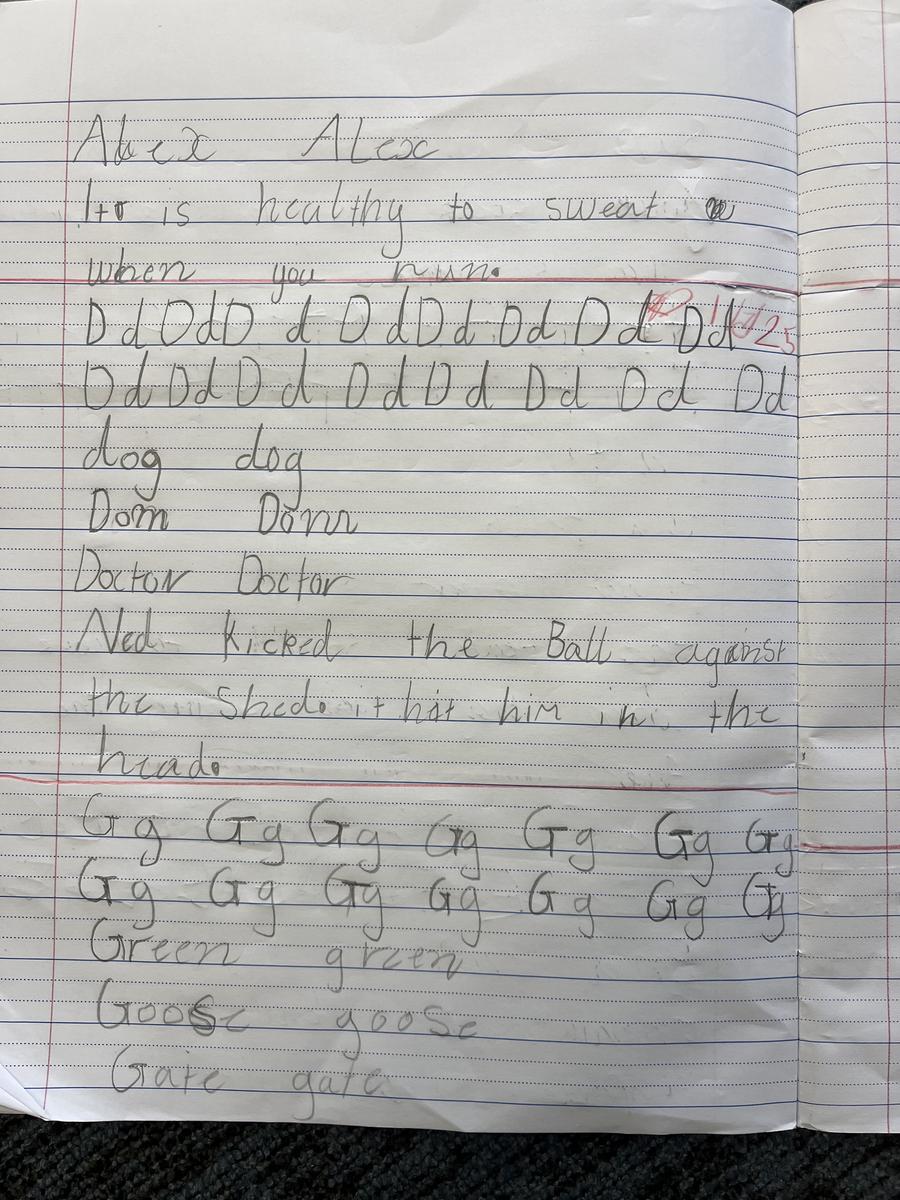 Alex Alex
It is healthy to sweat
when you run.
Dd Dd D d D d Dd Dd Dd Dd 25
Dd Dd D d D d D d Dd Dd Dd
dog dog
Dom Dom
Doctor Doctor
Ned kicked the Ball against
the shed. it hit him in the
head.
Gg Gg Gg Gg Gg Gg Gg
Gg Gg Gg Gg Gg Gg Gg
Green green
Goose goose
Gate gate